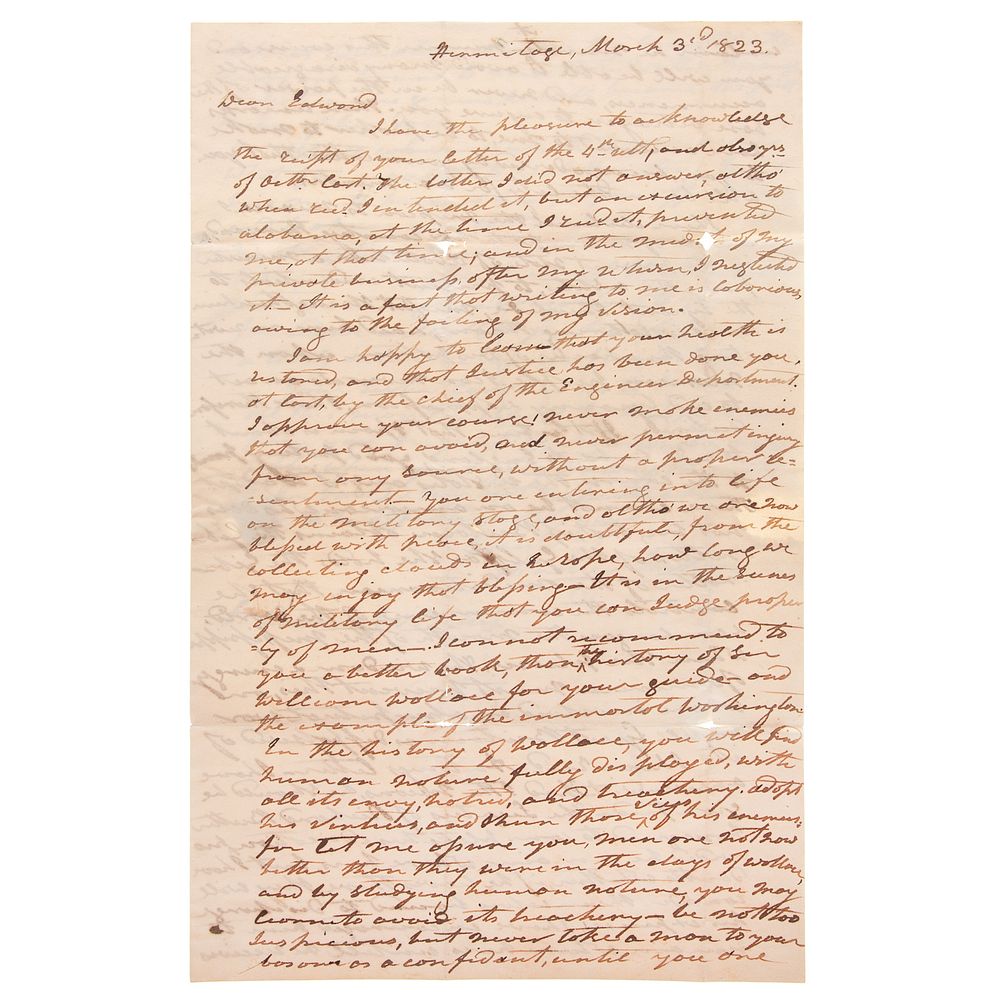 Hermitage, March 3rd 1823.
Dear Edward
I have the pleasure to acknowledge
the recipt of your letter of the 4th ult, and also yrs
of Octbr last. The latter I did not answer, altho
when recd. I intended it, but an excursion to
alabama, at the time I recd it, prevented
me, at that time; and in the midst of my
private business, after my return, I neglected
it- It is a fact that writing to me is laborious,
owing to the failing of my vision.
I am happy to learn that your health is
restored, and that Justice has been done you,
at last, by the chief of the Engineer Department.
I approve your course! never make enemies
that you can avoid, and never permit injury
from any source, without a proper re=
=sentment- You are entering into life
on the military stage, and altho we are now
blessed with peace, it is doubtful, from the
collecting clouds in Europe, how long we
may injoy that blessing- It is in the scenes
of military life that you can Judge, proper
=ly of men-. I cannot recommend to
you a better book, than the history of Sir
William Wallace for your guide- and
the example of the immortal Washington-
In the history of Wallace, you will find
human nature fully displayed, with
all its envy, hatred, and treachery. adopt
his virtues, and shun those vices of his enemies-
for let me assure you, men are not now
better than they were in the days of Wallace,
and by studying human nature, you may
learn to avoid its treachery- be not too
suspicious, but never take a man to your
bosom as a confidant, until you are